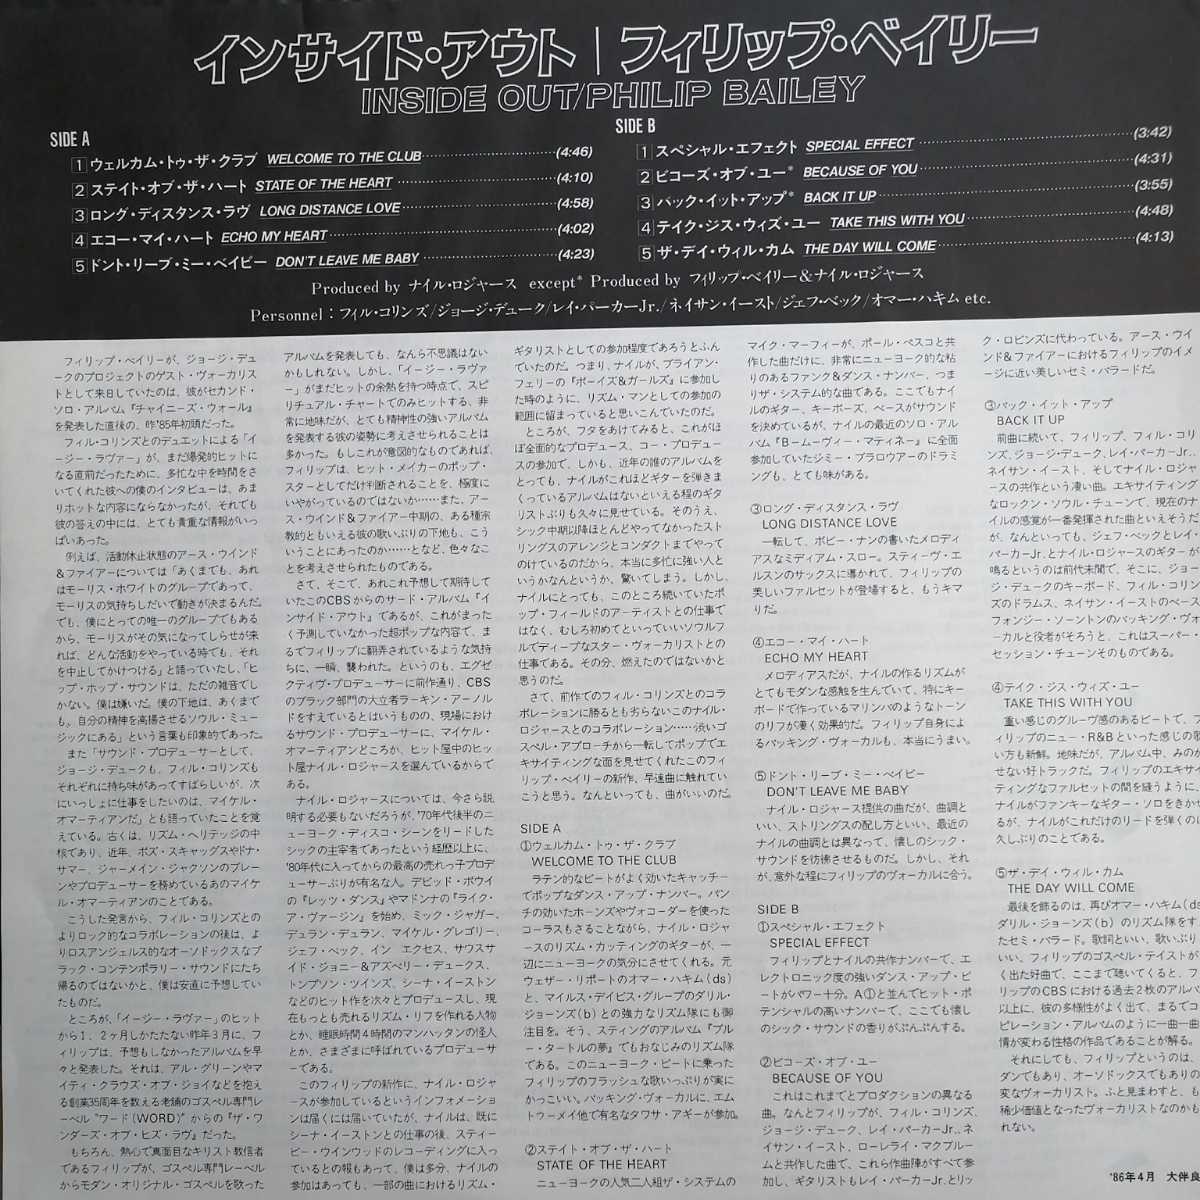 インサイド・アウト｜フィリップ・ベイリー
INSIDE OUT/PHILIP BAILEY
SIDE A
1 ウェルカム・トゥ・ザ・クラブ WELCOME TO THE CLUB (4:46)
2 ステイト・オブ・ザ・ハート STATE OF THE HEART (4:10)
3 ロング・ディスタンス・ラヴ LONG DISTANCE LOVE (4:58)
4 エコー・マイ・ハート ECHO MY HEART (4:02)
5 ドント・リーブ・ミー・ベイビー DON'T LEAVE ME BABY (4:23)
SIDE B
1 スペシャル・エフェクト SPECIAL EFFECT (3:42)
2 ビコーズ・オブ・ユー* BECAUSE OF YOU (4:31)
3 バック・イット・アップ* BACK IT UP (3:55)
4 テイク・ジス・ウィズ・ユー TAKE THIS WITH YOU (4:48)
5 ザ・デイ・ウィル・カム THE DAY WILL COME (4:13)
Produced by ナイル・ロジャース except* Produced by フィリップ・ベイリー＆ナイル・ロジャース
Personnel：フィル・コリンズ/ジョージ・デューク/レイ・パーカーJr./ネイサン・イースト/ジェフ・ベック/オマー・ハキム etc.
フィリップ・ベイリーが、ジョージ・デュ
ークのプロジェクトのゲスト・ヴォーカリス
トとして来日していたのは、彼がセカンド・
ソロ・アルバム『チャイニーズ・ウォール』
を発表した直後の、昨'85年初頭だった。
フィル・コリンズとのデュエットによる「イ
ージー・ラヴァー」が、まだ爆発的ヒットに
なる直前だったために、多忙な中を時間をさ
いてくれた彼への僕のインタビューは、あま
りホットな内容にならなかったが、それでも
彼の答えの中には、とても貴重な情報がいっ
ぱいあった。
例えば、活動休止状態のアース・ウインド
＆ファイアーについては「あくまでも、あれ
はモーリス・ホワイトのグループであって、
モーリスの気持ちしだいで動きが決まるんだ。
でも、僕にとっての唯一のグループでもある
から、モーリスがその気になってしらせが来
れば、どんな活動をやっている時でも、それ
を中止してかけつける」と語っていたし、「ヒ
ップ・ホップ・サウンドは、ただの雑音でし
かない。僕は嫌いだ。僕の下地は、あくまで
も、自分の精神を高揚させるソウル・ミュー
ジックにある」という言葉も印象的であった。
また「サウンド・プロデューサーとして、
ジョージ・デュークも、フィル・コリンズも
それぞれに持ち味があってすばらしいが、次
にいっしょに仕事をしたいのは、マイケル・
オマーティアンだ」とも語っていたことを覚
えている。古くは、リズム・ヘリテッジの中
核であり、近年、ボズ・スキャッグスやドナ・
サマー、ジャーメイン・ジャクソンのブレー
ンやプロデューサーを務めているあのマイケ
ル・オマーティアンのことである。
こうした発言から、フィル・コリンズとの
よりロック的なコラボレーションの後は、よ
りロスアンジェルス的なオーソドックスなブ
ラック・コンテンポラリー・サウンドにたち
帰るのではないかと、僕は安直に予想してい
たものだ。
ところが、「イージー・ラヴァー」のヒット
から1、2ヶ月しかたたない昨年3月に、フ
ィリップは、予想もしなかったアルバムを早
々と発表した。それは、アル・グリーンやマ
イティ・クラウズ・オブ・ジョイなどを抱え
る創業35周年を数える老舗のゴスペル専門レ
ーベル“ワード(WORD)”からの『ザ・ワ
ンダーズ・オブ・ヒズ・ラヴ』だった。
もちろん、熱心で真面目なキリスト教信者
であるフィリップが、ゴスペル専門レーベル
からモダン・オリジナル・ゴスペルを歌った
アルバムを発表しても、なんら不思議はない
かもしれない。しかし、「イージー・ラヴァ
ー」がまだヒットの余熱を持つ時点で、スピ
リチュアル・チャートでのみヒットする、非
常に地味だが、とても精神性の強いアルバム
を発表する彼の姿勢に考えさせられることは
多かった。もしこれが意図的なものであれば、
フィリップは、ヒット・メイカーのポップ・
スターとしてだけ判断されることを、極度に
いやがっているのではないか……また、アー
ス・ウインド＆ファイアー中期の、ある種宗
教的ともいえる彼の歌いぶりの下地も、こう
いうことにあったのか……となど、色々なこ
とを考えさせられたものである。
さて、そこで、あれこれ予想して期待して
いたこのCBSからのサード・アルバム『イ
ンサイド・アウト』であるが、これがまった
く予測していなかった超ポップな内容で、ま
るでフィリップに翻弄されているような気持
ちに、一瞬、襲われた。というのも、エグゼ
クティヴ・プロデューサーに前作通り、CBS
のブラック部門の大立者ラーキン・アーノル
ドをすえているとはいうものの、現場におけ
るサウンド・プロデューサーに、マイケル・
オマーティアンどころか、ヒット屋中のヒッ
ト屋ナイル・ロジャースを選んでいるからで
ある。
ナイル・ロジャースについては、今さら説
明する必要もないだろうが、'70年代後半のニ
ューヨーク・ディスコ・シーンをリードした
シックの主宰者であったという経歴以上に、
'80年代に入ってからの最高の売れっ子プロデ
ューサーぶりが有名な人。デビッド・ボウイ
の『レッツ・ダンス』やマドンナの『ライク・
ア・ヴァージン』を始め、ミック・ジャガー、
デュラン・デュラン、マイケル・グレゴリー、
ジェフ・ベック、イン エクセス、サウスサ
イド・ジョニー＆アズベリー・デュークス、
トンプソン・ツインズ、シーナ・イーストン
などのヒット作を次々とプロデュースし、現
在もっとも売れるリズム・リフを作れる人物
とか、睡眠時間4時間のマンハッタンの怪人
とか、さまざまに呼ばれているプロデューサ
ーである。
このフィリップの新作に、ナイル・ロジャ
ースが参加しているというインフォメーショ
ンは届くには届いていたが、ナイルは、既に
シーナ・イーストンとの仕事の後、スティー
ビー・ウインウッドのレコーディングに入っ
ているとの報もあって、僕は多分、ナイルの
参加はあっても、一部の曲におけるリズム・
ギタリストとしての参加程度であろうとふん
でいたのだ。つまり、ナイルが、ブライアン・
フェリーの『ボーイズ＆ガールズ』に参加し
た時のように、リズム・マンとしての参加の
範囲に留まっていると思いこんでいたのだ。
ところが、フタをあけてみると、これがほ
ぼ全面的なプロデュース、コー・プロデュー
スの参加で、しかも、近年の誰のアルバムを
とっても、ナイルがこれほどギターを弾きま
くっているアルバムはないといえる程のギタ
リストぶりも久々に見せている。そのうえ、
シック中期以降ほとんどやってなかったスト
リングスのアレンジとコンダクトまでやって
のけているのだから、本当に多忙に強い人と
いうかなんというか、驚いてしまう。しかし、
ナイルにとっても、このところ続いていたポ
ップ・フィールドのアーティストとの仕事で
はなく、むしろ初めてといっていいソウルフ
ルでディープなスター・ヴォーカリストとの
仕事である。その分、燃えたのではないかと
思うのだ。
さて、前作でのフィル・コリンズとのコラ
ボレーションに勝るとも劣らないこのナイル・
ロジャースとのコラボレーション……渋いゴ
スペル・アプローチから一転してポップでエ
キサイティングな面を見せてくれたこのフィ
リップ・ベイリーの新作、早速曲に触れてい
こうと思う。なんといっても、曲がいいのだ。
SIDE A
①ウェルカム・トゥ・ザ・クラブ
WELCOME TO THE CLUB
ラテン的なビートがよく効いたキャッチー
でポップなダンス・アップ・ナンバー。パン
チの効いたホーンズやヴォコーダーを使った
コーラスもさることながら、ナイル・ロジャ
ースのリズム・カッティングのギターが、一
辺にニューヨークの気分にさせてくれる。元
ウェザー・リポートのオマー・ハキム(ds)
と、マイルス・デイビス・グループのダリル・
ジョーンズ(b)との強力なリズム隊にも御
注目を。そう、スティングのアルバム『ブル
ー・タートルの夢』でもおなじみのリズム隊
である。このニューヨーク・ビートに乗った
フィリップのフラッシュな歌いっぷりが実に
かっこいい。バッキング・ヴォーカルに、エム
トゥーメイ他で有名なタワサ・アギーが参加。
②ステイト・オブ・ザ・ハート
STATE OF THE HEART
ニューヨークの人気二人組ザ・システムの
マイク・マーフィーが、ポール・ペスコと共
作した曲だけに、非常にニューヨーク的な粘
りのあるファンク＆ダンス・ナンバー、つま
りザ・システム的な曲である。ここでもナイ
ルのギター、キーボーズ、ベースがサウンド
を決めているが、ナイルの最近のソロ・アル
バム『B－ムーヴィー・マティネー』に全面
参加していたジミー・ブラロウアーのドラミ
ングも、とても味がある。
③ロング・ディスタンス・ラヴ
LONG DISTANCE LOVE
一転して、ボビー・ナンの書いたメロディ
アスなミディアム・スロー。スティーヴ・エ
ルスンのサックスに導かれて、フィリップの
美しいファルセットが登場すると、もうキマ
りだ。
④エコー・マイ・ハート
ECHO MY HEART
メロディアスだが、ナイルの作るリズムが
とてもモダンな感触を生んでいて、特にキー
ボードで作っているマリンバのようなトーン
のリフが凄く効果的だ。フィリップ自身によ
るバッキング・ヴォーカルも、本当にうまい。
⑤ドント・リーブ・ミー・ベイビー
DON'T LEAVE ME BABY
ナイル・ロジャース提供の曲だが、曲調と
いい、ストリングスの配し方といい、最近の
ナイルの曲調とは異なって、懐しのシック・
サウンドを彷彿させるものだ。しかし、それ
が、意外な程にフィリップのヴォーカルに合う。
SIDE B
①スペシャル・エフェクト
SPECIAL EFFECT
フィリップとナイルの共作ナンバーで、エ
レクトロニック度の強いダンス・アップ・ビ
ートがパワー十分。A①と並んでヒット・ポ
テンシャルの高いナンバーで、ここでも懐し
のシック・サウンドの香りがぷんぷんする。
②ビコーズ・オブ・ユー
BECAUSE OF YOU
これはこれまでとプロダクションの異なる
曲。なんとフィリップが、フィル・コリンズ、
ジョージ・デューク、レイ・パーカーJr.、ネ
イサン・イースト、ローレライ・マクブルー
ムと共作した曲で、これら作曲陣がすべて参
加し、ギタリストもレイ・パーカーJr.とリッ
ク・ロビンズに代わっている。アース・ウイ
ンド＆ファイアーにおけるフィリップのイメ
ージに近い美しいセミ・バラードだ。
③バック・イット・アップ
BACK IT UP
前曲に続いて、フィリップ、フィル・コリ
ンズ、ジョージ・デューク、レイ・パーカーJr.、
ネイサン・イースト、そしてナイル・ロジャ
ースの共作という凄い曲。エキサイティング
なロックン・ソウル・チューンで、現在のナ
イルの感覚が一番発揮された曲といえそうだ
が、なんといっても、ジェフ・ベックとレイ・
パーカーJr.とナイル・ロジャースのギターが
鳴るというのは前代未聞で、そこに、ジョー
ジ・デュークのキーボード、フィル・コリン
ズのドラムス、ネイサン・イーストのベース、
フォンジー・ソーントンのバッキング・ヴォ
ーカルと役者がそろうと、これはスーパー・
セッション・チューンそのものである。
④テイク・ジス・ウィズ・ユー
TAKE THIS WITH YOU
重い感じのグルーヴ感のあるビートで、フ
ィリップのニュー・R＆Bといった感じの歌
い方も新鮮。地味だが、アルバム中、みのが
せない好トラックだ。フィリップのエキサイ
ティングなファルセットの間を縫うように、
ナイルがファンキーなギター・ソロをきかせ
るが、ナイルがこれだけのリードを弾くのは
久しぶりのことである。
⑤ザ・デイ・ウィル・カム
THE DAY WILL COME
最後を飾るのは、再びオマー・ハキム(ds)
ダリル・ジョーンズ(b)のリズム隊をす
たセミ・バラード。歌詞といい、歌いぶり
いい、フィリップのゴスペル・テイストが
く出た好曲で、ここまで聴いてくると、フ
リップのCBSにおける過去2枚のアルバ
以上に、彼の多様性がよく出て、まるでコ
ピレーション・アルバムのように一曲一曲
情が変わる性格の作品であることが解る。
それにしても、フィリップというのは、
ダンでもあり、オーソドックスでもありの
変なヴォーカリスト。ふと見まわすと、も
稀少価値となったヴォーカリストなのかも
れない。
'86年4月　大伴良